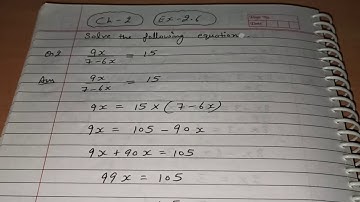 Ch-2 Ex-2.6
Solve the following equation
Qn.2 9x/7-6x = 15
Ans 9x/7-6x = 15
9x = 15 x (7-6x)
9x = 105 - 90x
9x + 90x = 105
99x = 105